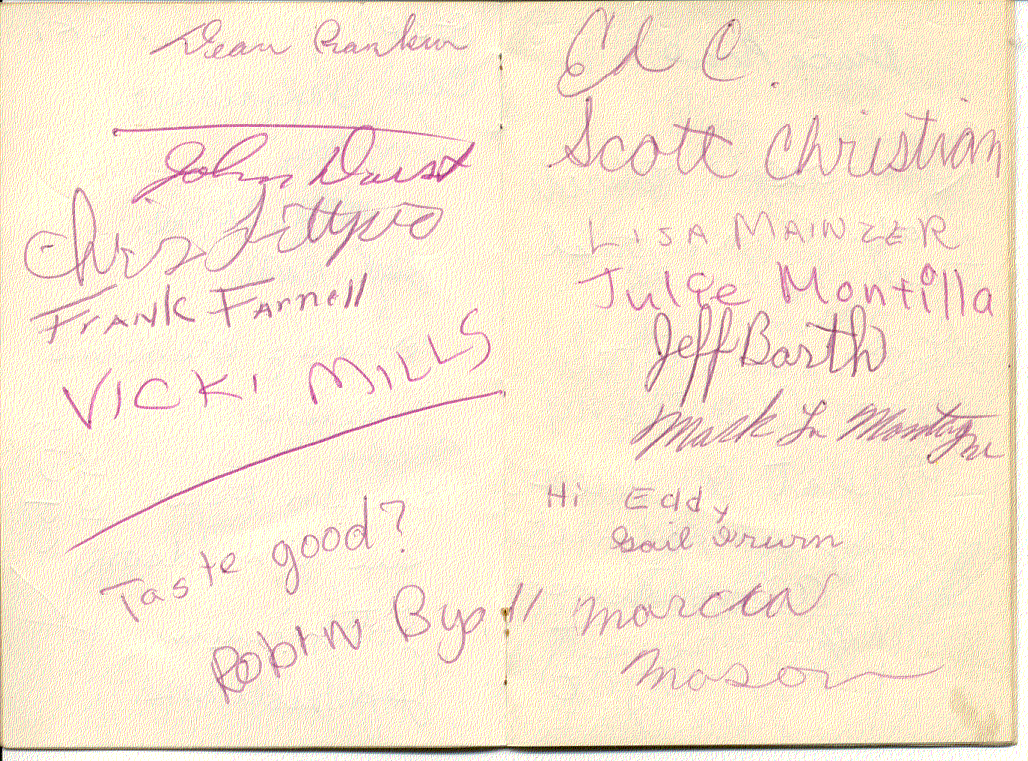 Dean Rankin
John Durst
Chris
Frank Farnell
Vicki Mills
Taste good?
Robin Byall
Ed C.
Scott Christian
Lisa Mainzer
Julie Montilla
Jeff Barth
Mark La Montagne
Hi Eddy
Gail
Marcia
Mason